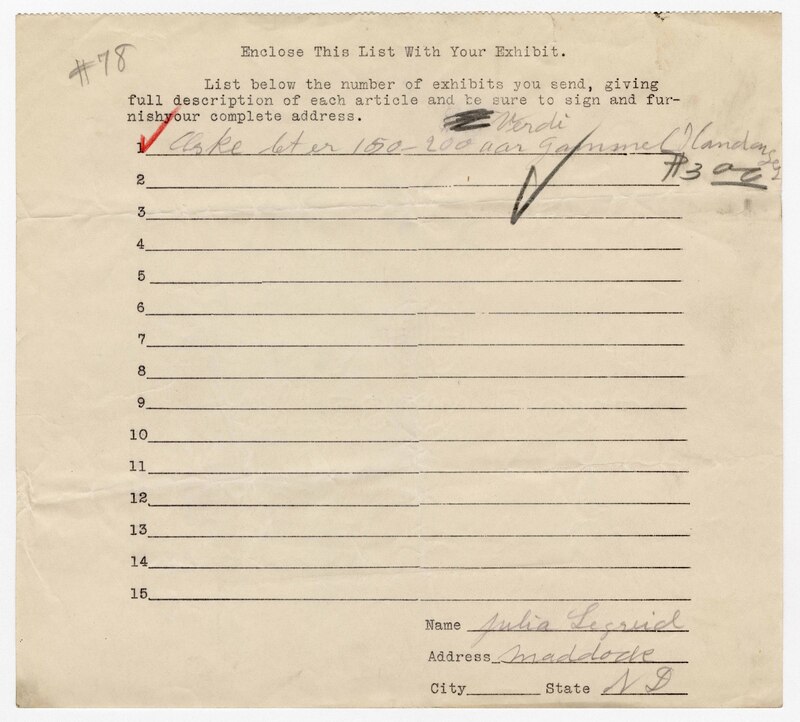 #78
Enclose This List With Your Exhibit.
List below the number of exhibits you send, giving
full description of each article and be sure to sign and fur-
nishyour complete address.
Verdi
1 Aske let er 150-200 aar Gammel
$3.00
2
3
4
5
6
7
8
9
10
11
12
13
14
15
Name Julia Legreid
Address Maddock
City State N D